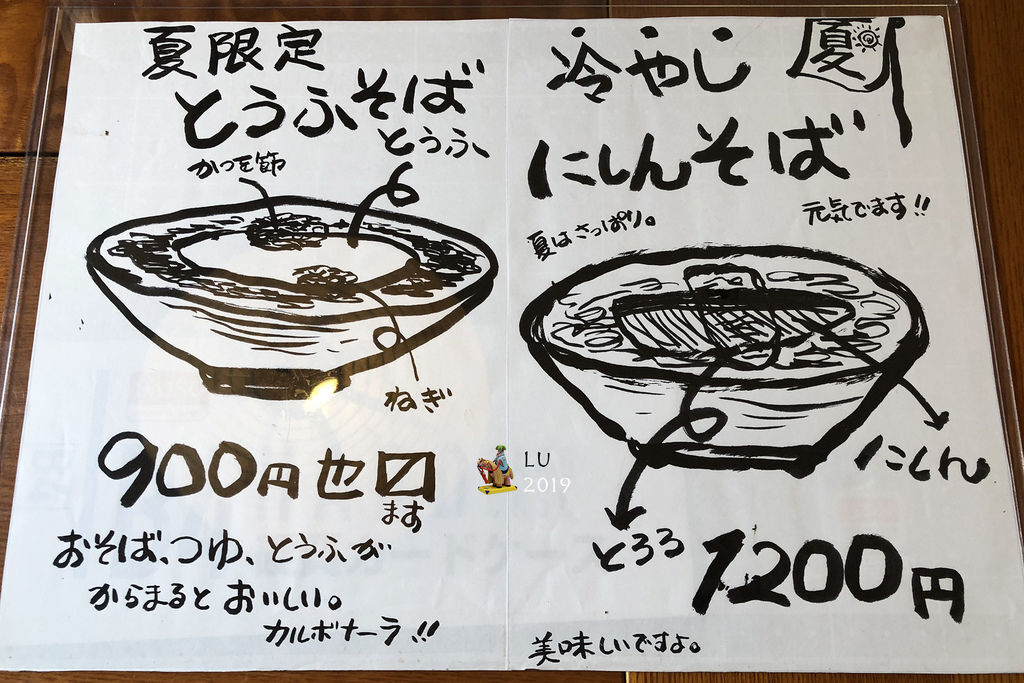 夏限定
とうふそば
とうふ
かつを節
ねぎ
900円也〼
ます
おそば、つゆ、とうふが
からまるとおいしい。
カルボナーラ!!
冷やし
夏
にしんそば
元気でます!!
夏はさっぱり。
にしん
とろろ
1200円
美味しいですよ。
LU
2019